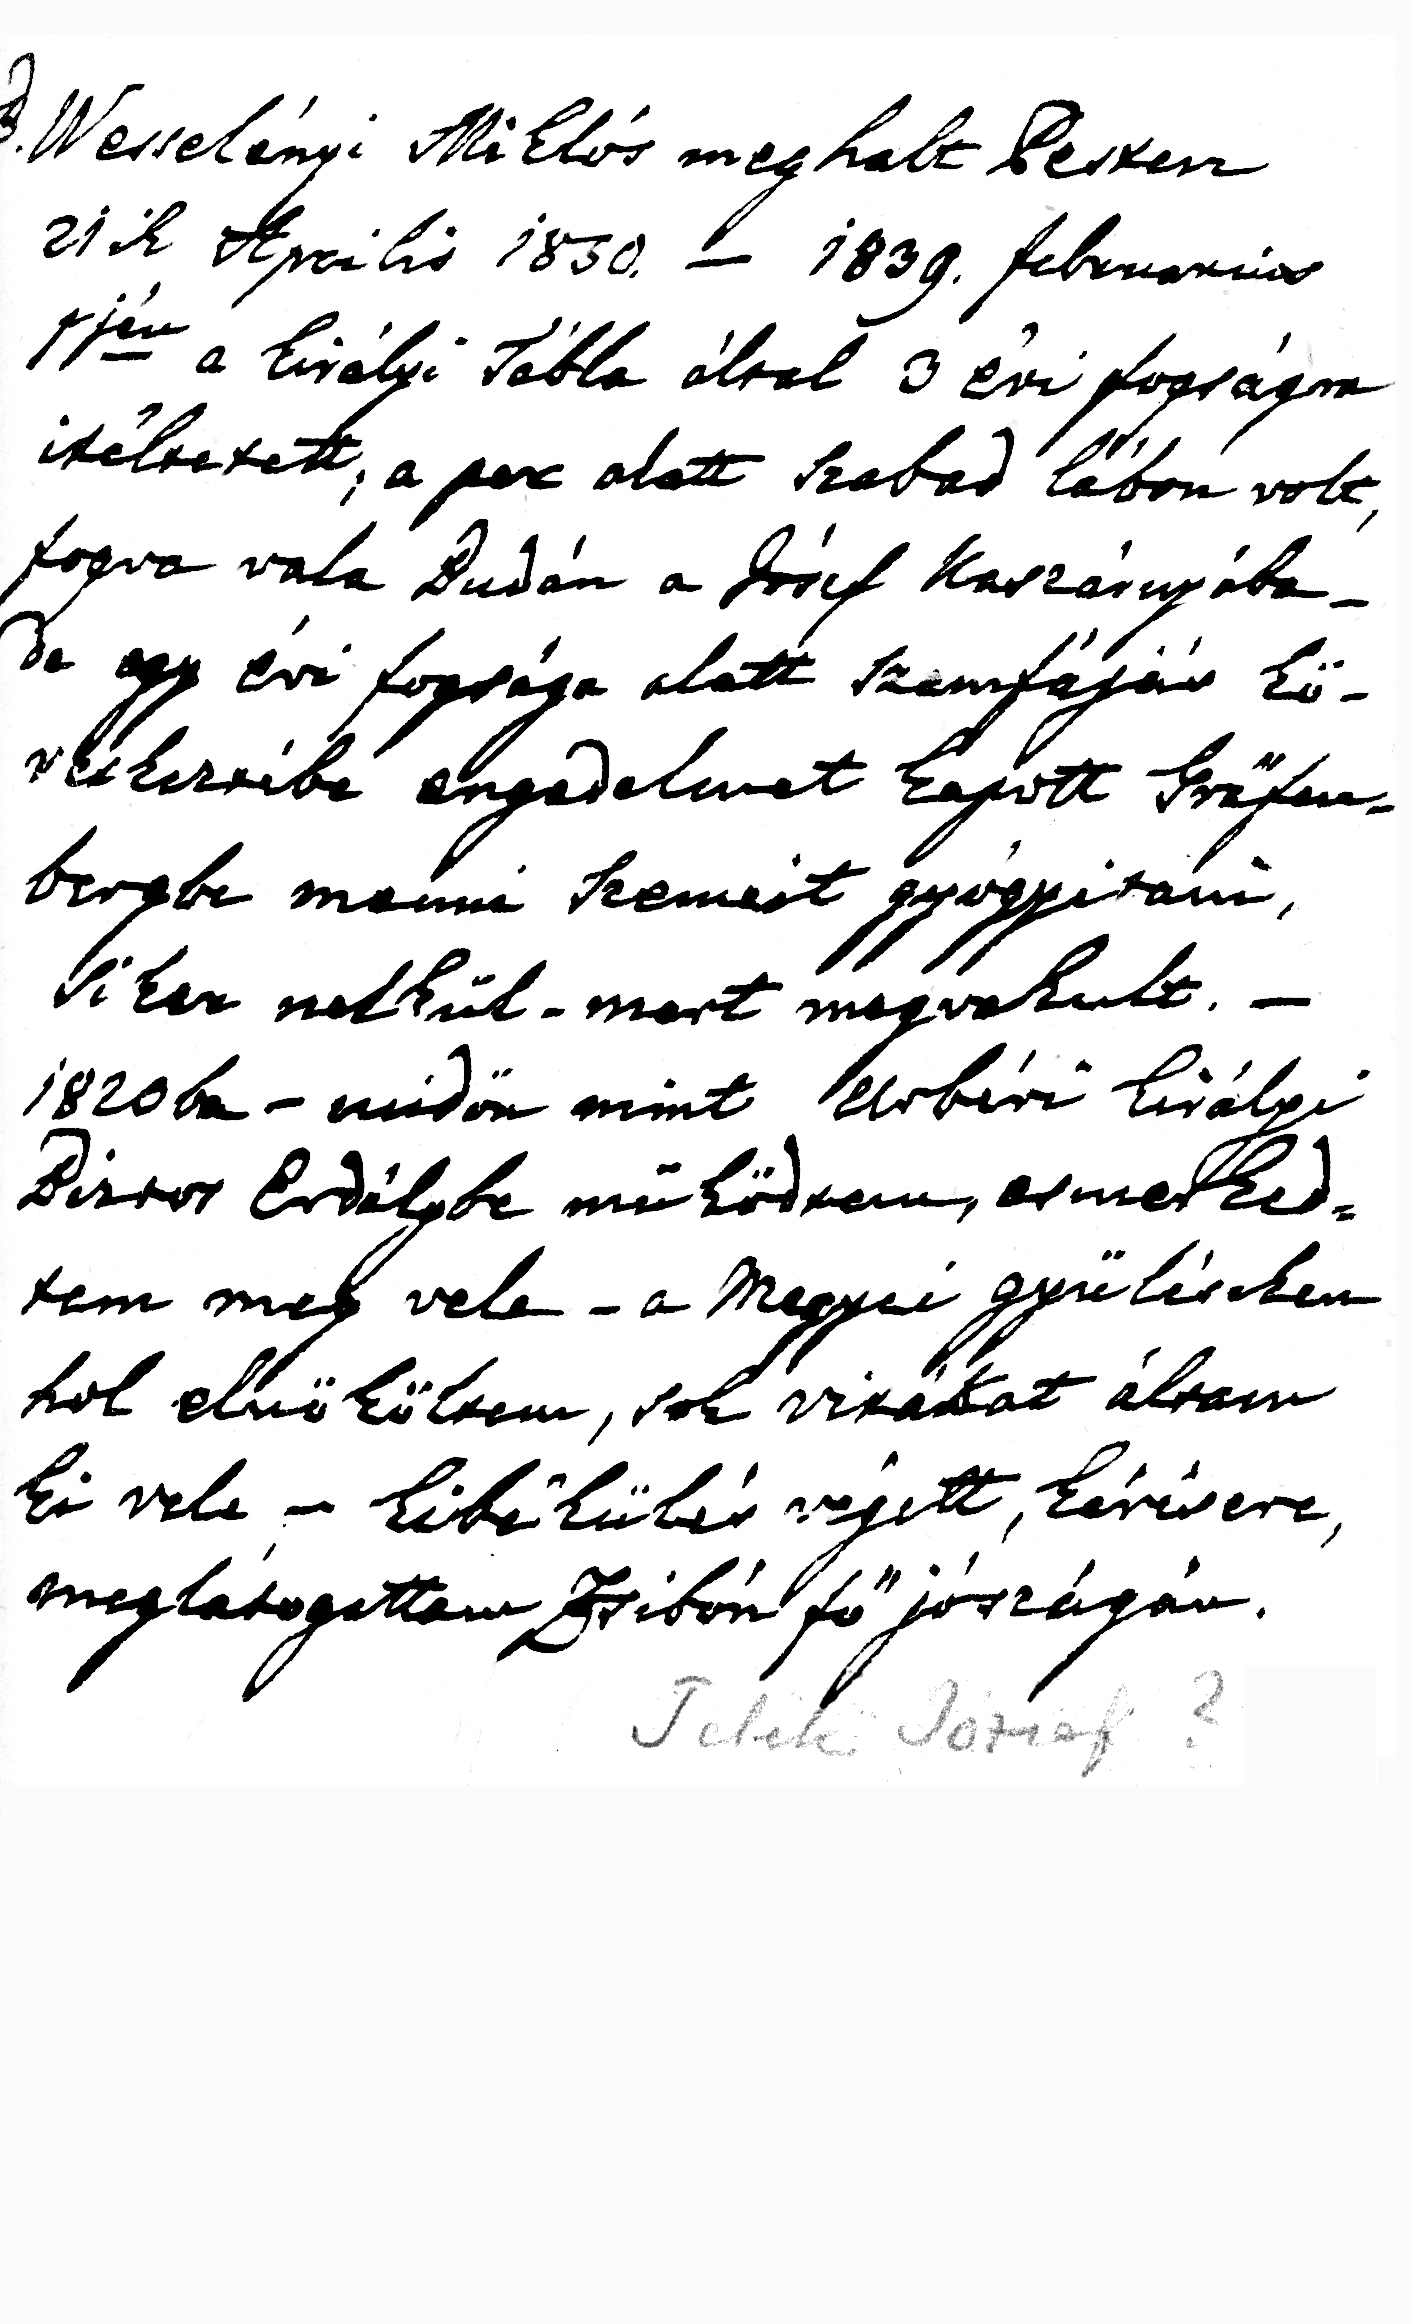 B. Wesselényi Miklós meghalt Pesten
21ik Aprilis 1850. – 1839. februarius
1jén a királyi Tábla által 3 évi fogságra
itéltetett; a per alatt szabad lábon volt,
fogva vala Budán a Jósef Kaszárnyába –
de egy évi fogsága alatt szemfájás kö-
vetkeztébe engedelmet kapott Gräfen-
bergbe menni szemeit gyógyitani,
siker nelkül – mert megvakult. –
1820ba – midön mint Urbéri királyi
Biztos Erdélybe müködtem, esmerked=
tem meg vele – a Megyei gyüléseken
hol elnököltem, sok vitákat áltam
ki vele – kibékülés végett, kérésere,
meglátogattam Zsibón fő jószágán.
Teleki József ?